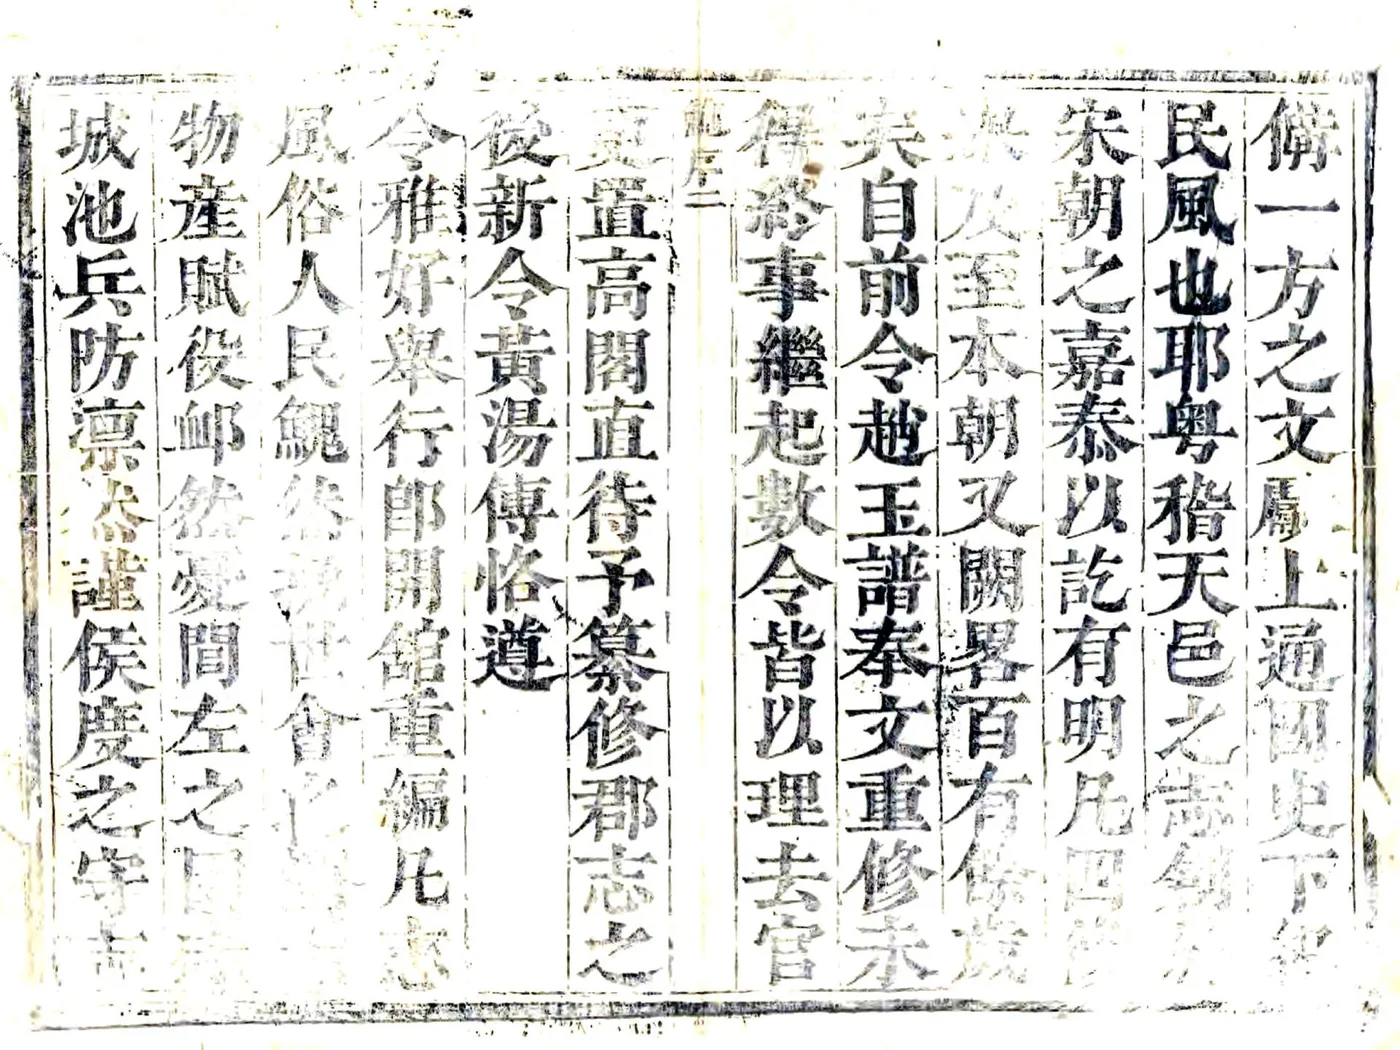 備一方之文屬上通四史下
民風也耶粤稽天邑之志創
宋朝之嘉泰以訖有明凡四
及至本朝又闕畧百有餘歲
矣自前令趙玉譜奉文重修未
得終事繼起數令皆以理去官
更置高閣直待予纂修郡志之
後新令黃湯傅恪遵
令雅好舉行即開舘重編凡志
風俗人民鰓然世會之
物産賦役䘏然憂間左之
城池兵防凛然謹侯度之守志